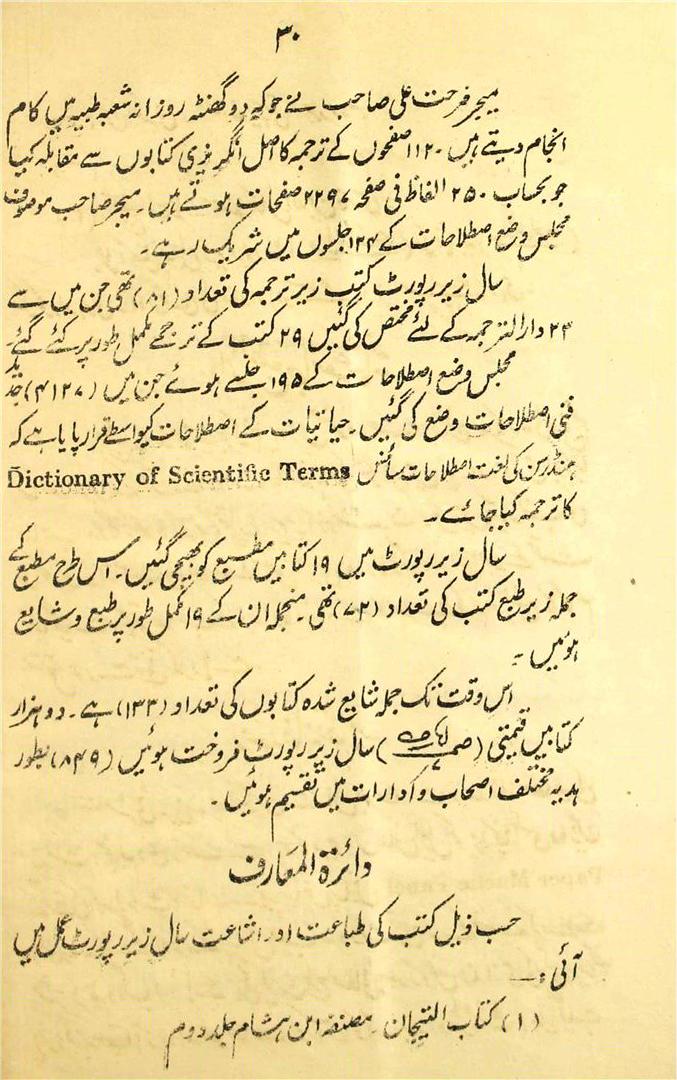 ۳۰
میجر فرحت علی صاحب نے جو کہ دو گھنٹہ روزانہ شعبہ طبیہ میں کام
انجام دیتے ہیں ۱۱۲۰ صفحوں کے ترجمہ کا اصل انگریزی کتابوں سے مقابلہ کیا
جو بحساب ۲۵۰ الفاظ فی صفحہ ۲۲۹۷ صفحات ہوتے ہیں۔ میجر صاحب موصوف
مجلس وضع اصطلاحات کے ۱۳۴ جلسوں میں شریک رہے۔
سال زیر رپورٹ کتب زیر ترجمہ کی تعداد (۸۱) تھی جن میں سے
۲۳ دارالترجمہ کے لئے مختص کی گئیں ۲۹ کتب کے ترجمے مکمل طور پر کئے گئے۔
مجلس وضع اصطلاحات کے ۱۹۵ جلسے ہوئے جن میں (۴۱۲۷) جدید
فنی اصطلاحات وضع کی گئیں۔ حیاتیات کے اصطلاحات کیواسطے قرار پایا ہے کہ
ہنڈرسن کی لغت اصطلاحات سائنس Dictionary of Scientific Terms
کا ترجمہ کیا جائے۔
سال زیر رپورٹ میں ۱۹ کتابیں مطبع کو بھیجی گئیں۔ اس طرح مطبع کے
جملہ زیر طبع کتب کی تعداد (۷۳) تھی۔ منجملہ ان کے ۱۹ مکمل طور پر طبع و شایع
ہوئیں۔
اس وقت تک جملہ شایع شدہ کتابوں کی تعداد (۱۳۳) ہے۔ دو ہزار
کتابیں قیمتی ( ) سال زیر رپورٹ فروخت ہوئیں (۸۴۹) بطور
ہدیہ مختلف اصحاب و ادارات میں تقسیم ہوئیں۔
دائرۃ المعارف
حسب ذیل کتب کی طباعت اور اشاعت سال زیر رپورٹ عمل میں
آئی :—
(۱) کتاب التیجان۔ مصنفہ ابن ہشام جلد دوم